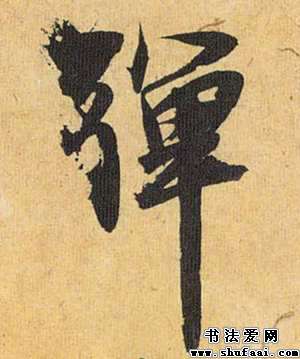 彈
书法爱网
www.shufaai.com